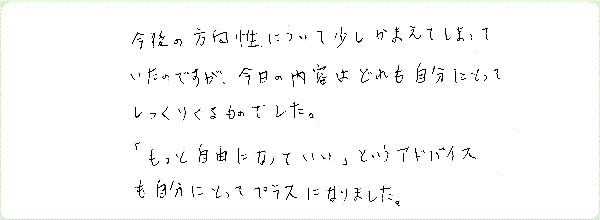 今後の方向性について少しかまえてしまって
いたのですが、今日の内容はどれも自分にとって
しっくりくるものでした。
「もっと自由になっていい」というアドバイス
も自分にとってプラスになりました。